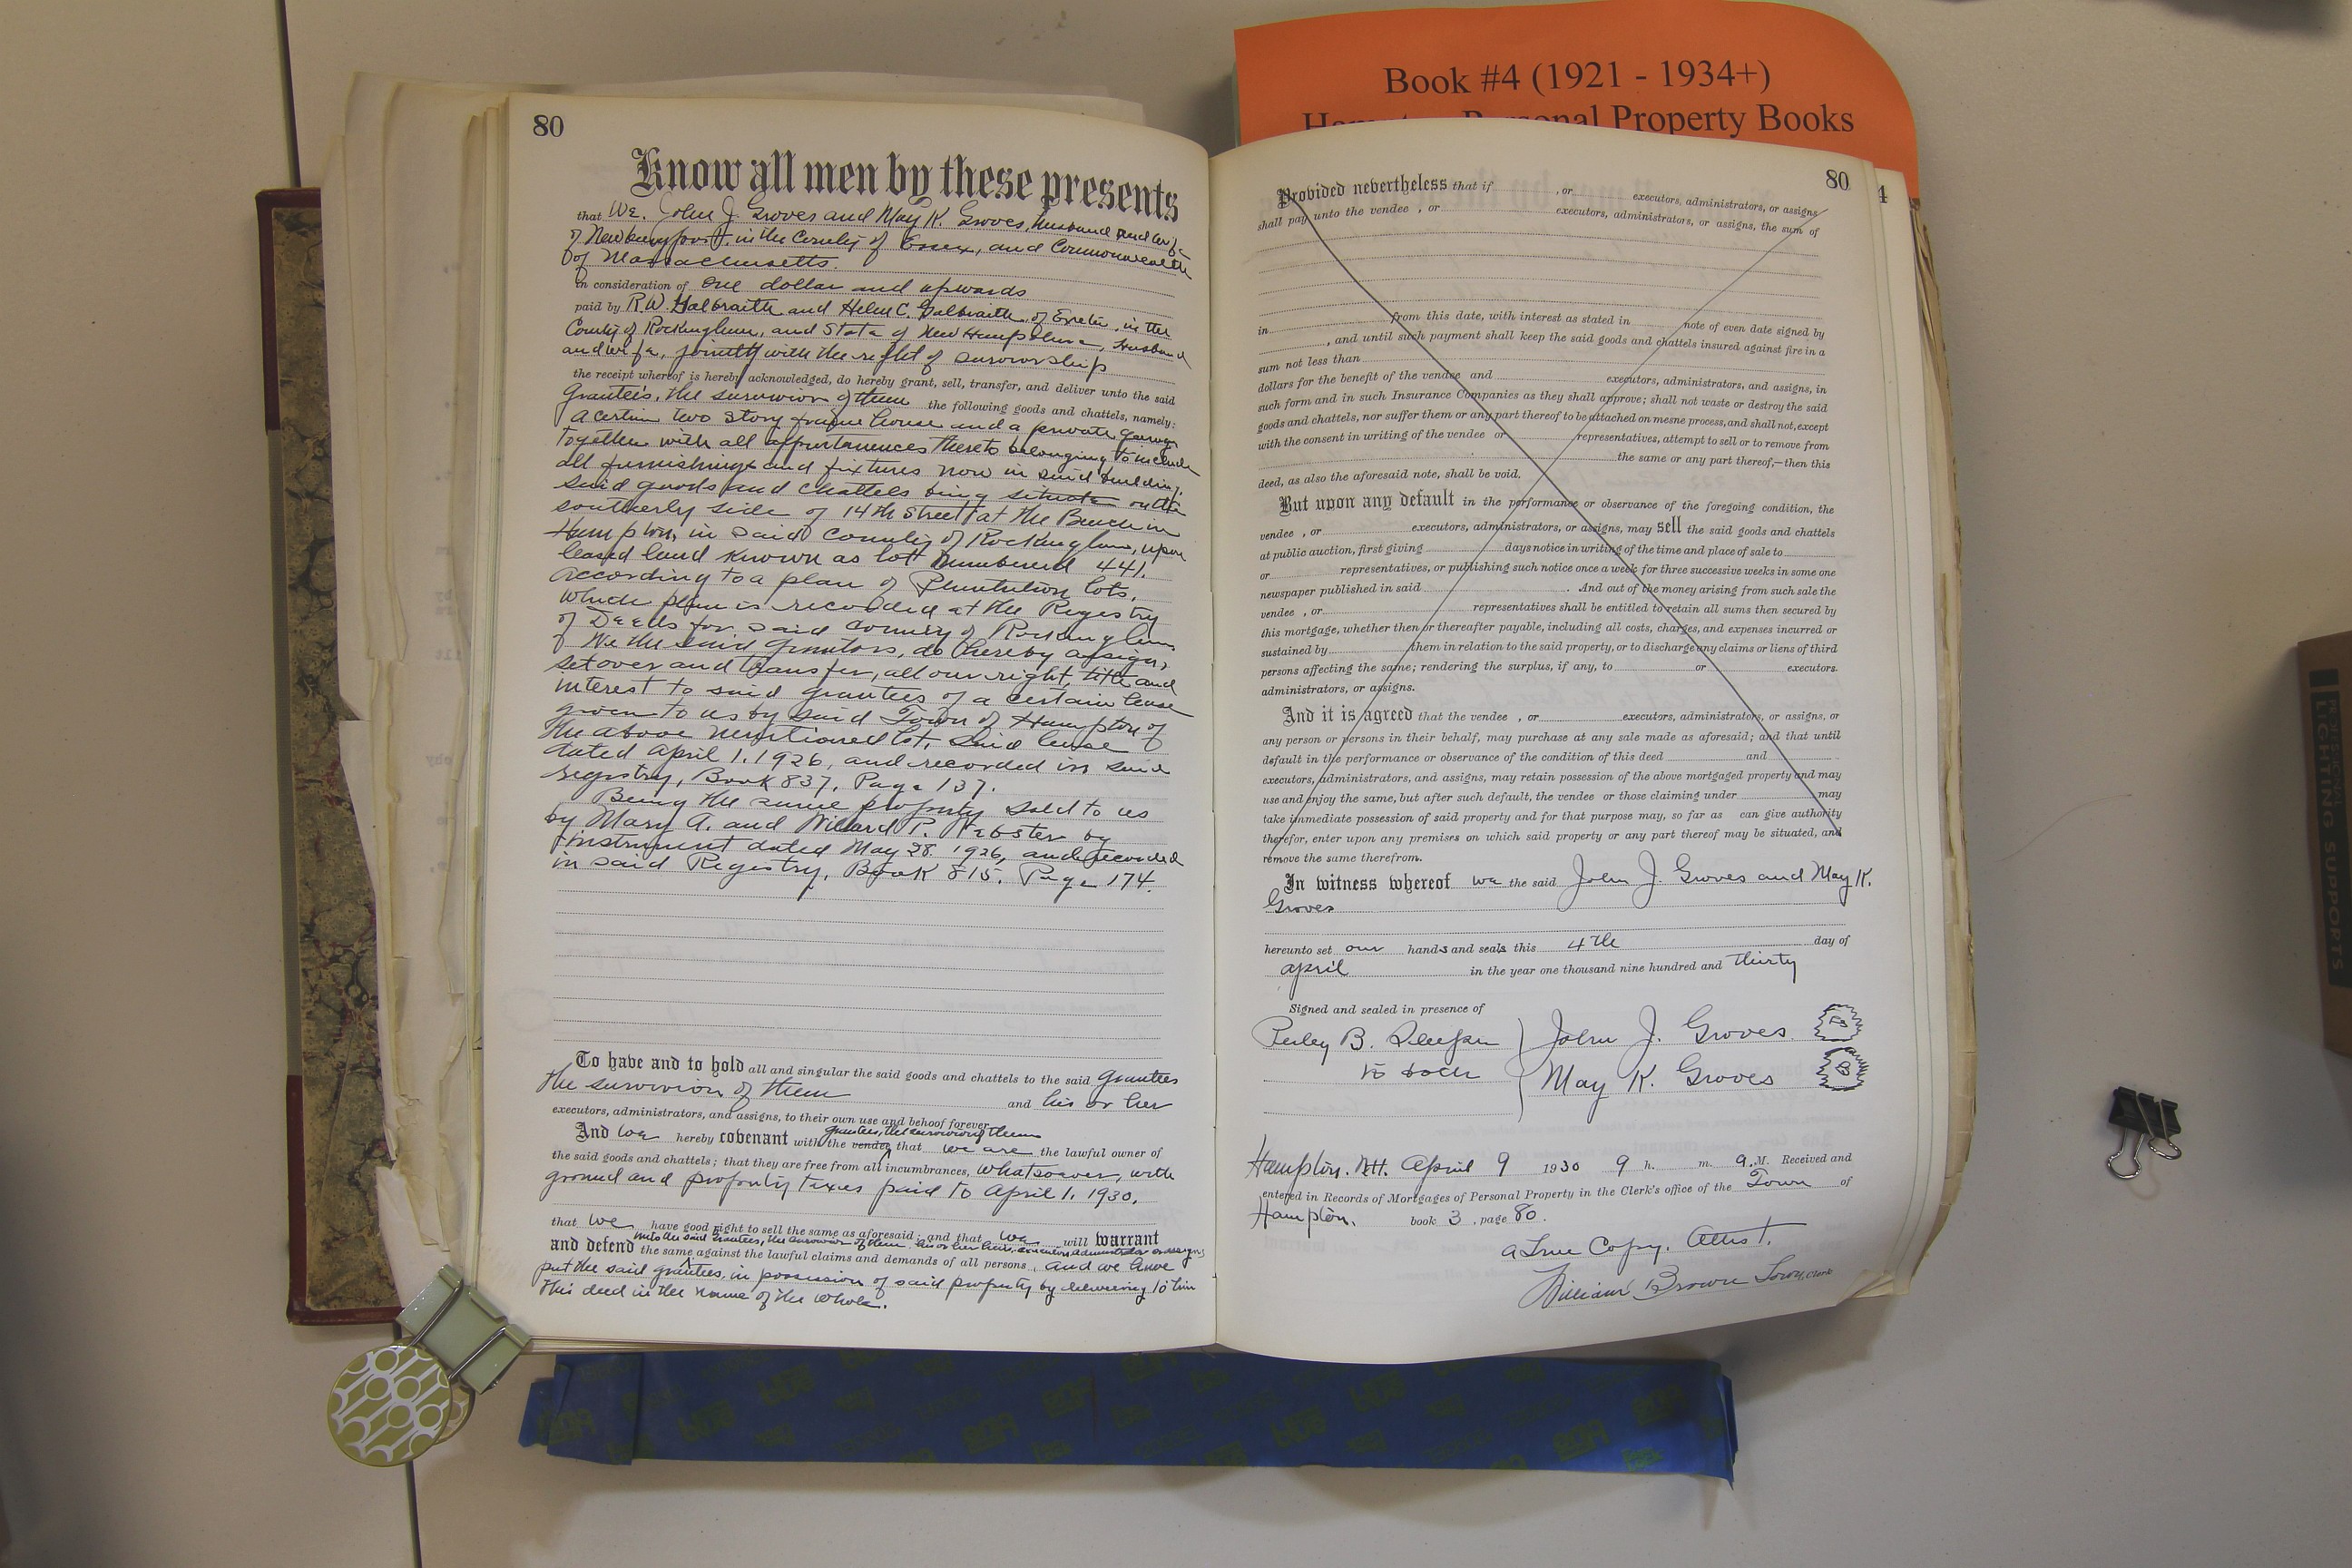 Book #4 (1921 - 1934+)
Personal Property Books
80
Know all men by these presents
that We, John J. Groves and May K. Groves, husband and wife
of Newburyport, in the County of Essex, and Commonwealth
of Massachusetts.
in consideration of one dollar and upwards
paid by R.W. Galbraith and Helen C. Galbraith, of Exeter, in the
County of Rockingham, and State of New Hampshire, Husband
and wife, jointly with the right of survivorship
the receipt whereof is hereby acknowledged, do hereby grant, sell, transfer, and deliver unto the said
Grantees, the survivor of them the following goods and chattels, namely:
A certain two story frame house and a private garage
together with all appurtenances thereto belonging to include
all furnishings and fixtures now in said building,
said goods and chattels being situate on the
southerly side of 14th Street at the Beach in
Hampton, in said County of Rockingham, upon
leased land known as lot numbered 441.
according to a plan of Plantation lots,
which plan is recorded at the Registry
of Deeds for said County of Rockingham
We the said grantors, do hereby assign,
set over and transfer, all our right, title and
interest to said grantees of a certain lease
given to us by said Town of Hampton of
the above mentioned lot, said lease
dated April 1, 1926, and recorded in said
registry, Book 837, Page 137.
Being the same property sold to us
by Mary A. and Willard P. Webster by
instrument dated May 28. 1926, and recorded
in said Registry, Book 815. Page 174.
To have and to hold all and singular the said goods and chattels to the said grantees
the survivor of them and his or her
executors, administrators, and assigns, to their own use and behoof forever.
grantees, the survivor of them
And we hereby covenant with the vendee that we are the lawful owner of
the said goods and chattels; that they are free from all incumbrances, whatsoever, with
ground and property taxes paid to April 1, 1930.
that we have good right to sell the same as aforesaid; and that we will warrant
unto the said Grantees, the survivor of them, his or her heirs, executors, administrator or assigns
and defend the same against the lawful claims and demands of all persons, and we have
put the said grantees, in possession of said property by delivering to him
this deed in the name of the whole.
80
4
Provided nevertheless that if , or executors, administrators, or assigns
shall pay unto the vendee , or executors, administrators, or assigns, the sum of
in from this date, with interest as stated in note of even date signed by
, and until such payment shall keep the said goods and chattels insured against fire in a
sum not less than
dollars for the benefit of the vendee and executors, administrators, and assigns, in
such form and in such Insurance Companies as they shall approve; shall not waste or destroy the said
goods and chattels, nor suffer them or any part thereof to be attached on mesne process, and shall not, except
with the consent in writing of the vendee or representatives, attempt to sell or to remove from
the same or any part thereof,—then this
deed, as also the aforesaid note, shall be void.
But upon any default in the performance or observance of the foregoing condition, the
vendee , or executors, administrators, or assigns, may sell the said goods and chattels
at public auction, first giving days notice in writing of the time and place of sale to
or representatives, or publishing such notice once a week for three successive weeks in some one
newspaper published in said . And out of the money arising from such sale the
vendee , or representatives shall be entitled to retain all sums then secured by
this mortgage, whether then or thereafter payable, including all costs, charges, and expenses incurred or
sustained by them in relation to the said property, or to discharge any claims or liens of third
persons affecting the same; rendering the surplus, if any, to or executors.
administrators, or assigns.
And it is agreed that the vendee , or executors, administrators, or assigns, or
any person or persons in their behalf, may purchase at any sale made as aforesaid; and that until
default in the performance or observance of the condition of this deed and
executors, administrators, and assigns, may retain possession of the above mortgaged property and may
use and enjoy the same, but after such default, the vendee or those claiming under may
take immediate possession of said property and for that purpose may, so far as can give authority
therefor, enter upon any premises on which said property or any part thereof may be situated, and
remove the same therefrom.
In witness whereof we the said John J. Groves and May K.
Groves
hereunto set our hands and seals this 4th day of
April in the year one thousand nine hundred and thirty
Signed and sealed in presence of
Perley B. John J. Groves
to both May K. Groves
Hampton. N.H. April 9 1930 9 h. m. A.M. Received and
entered in Records of Mortgages of Personal Property in the Clerk's office of the Town of
Hampton. book 3, page 80.
A True Copy. Attest.
William Brown Town Clerk
LIGHTING SUPPORTS